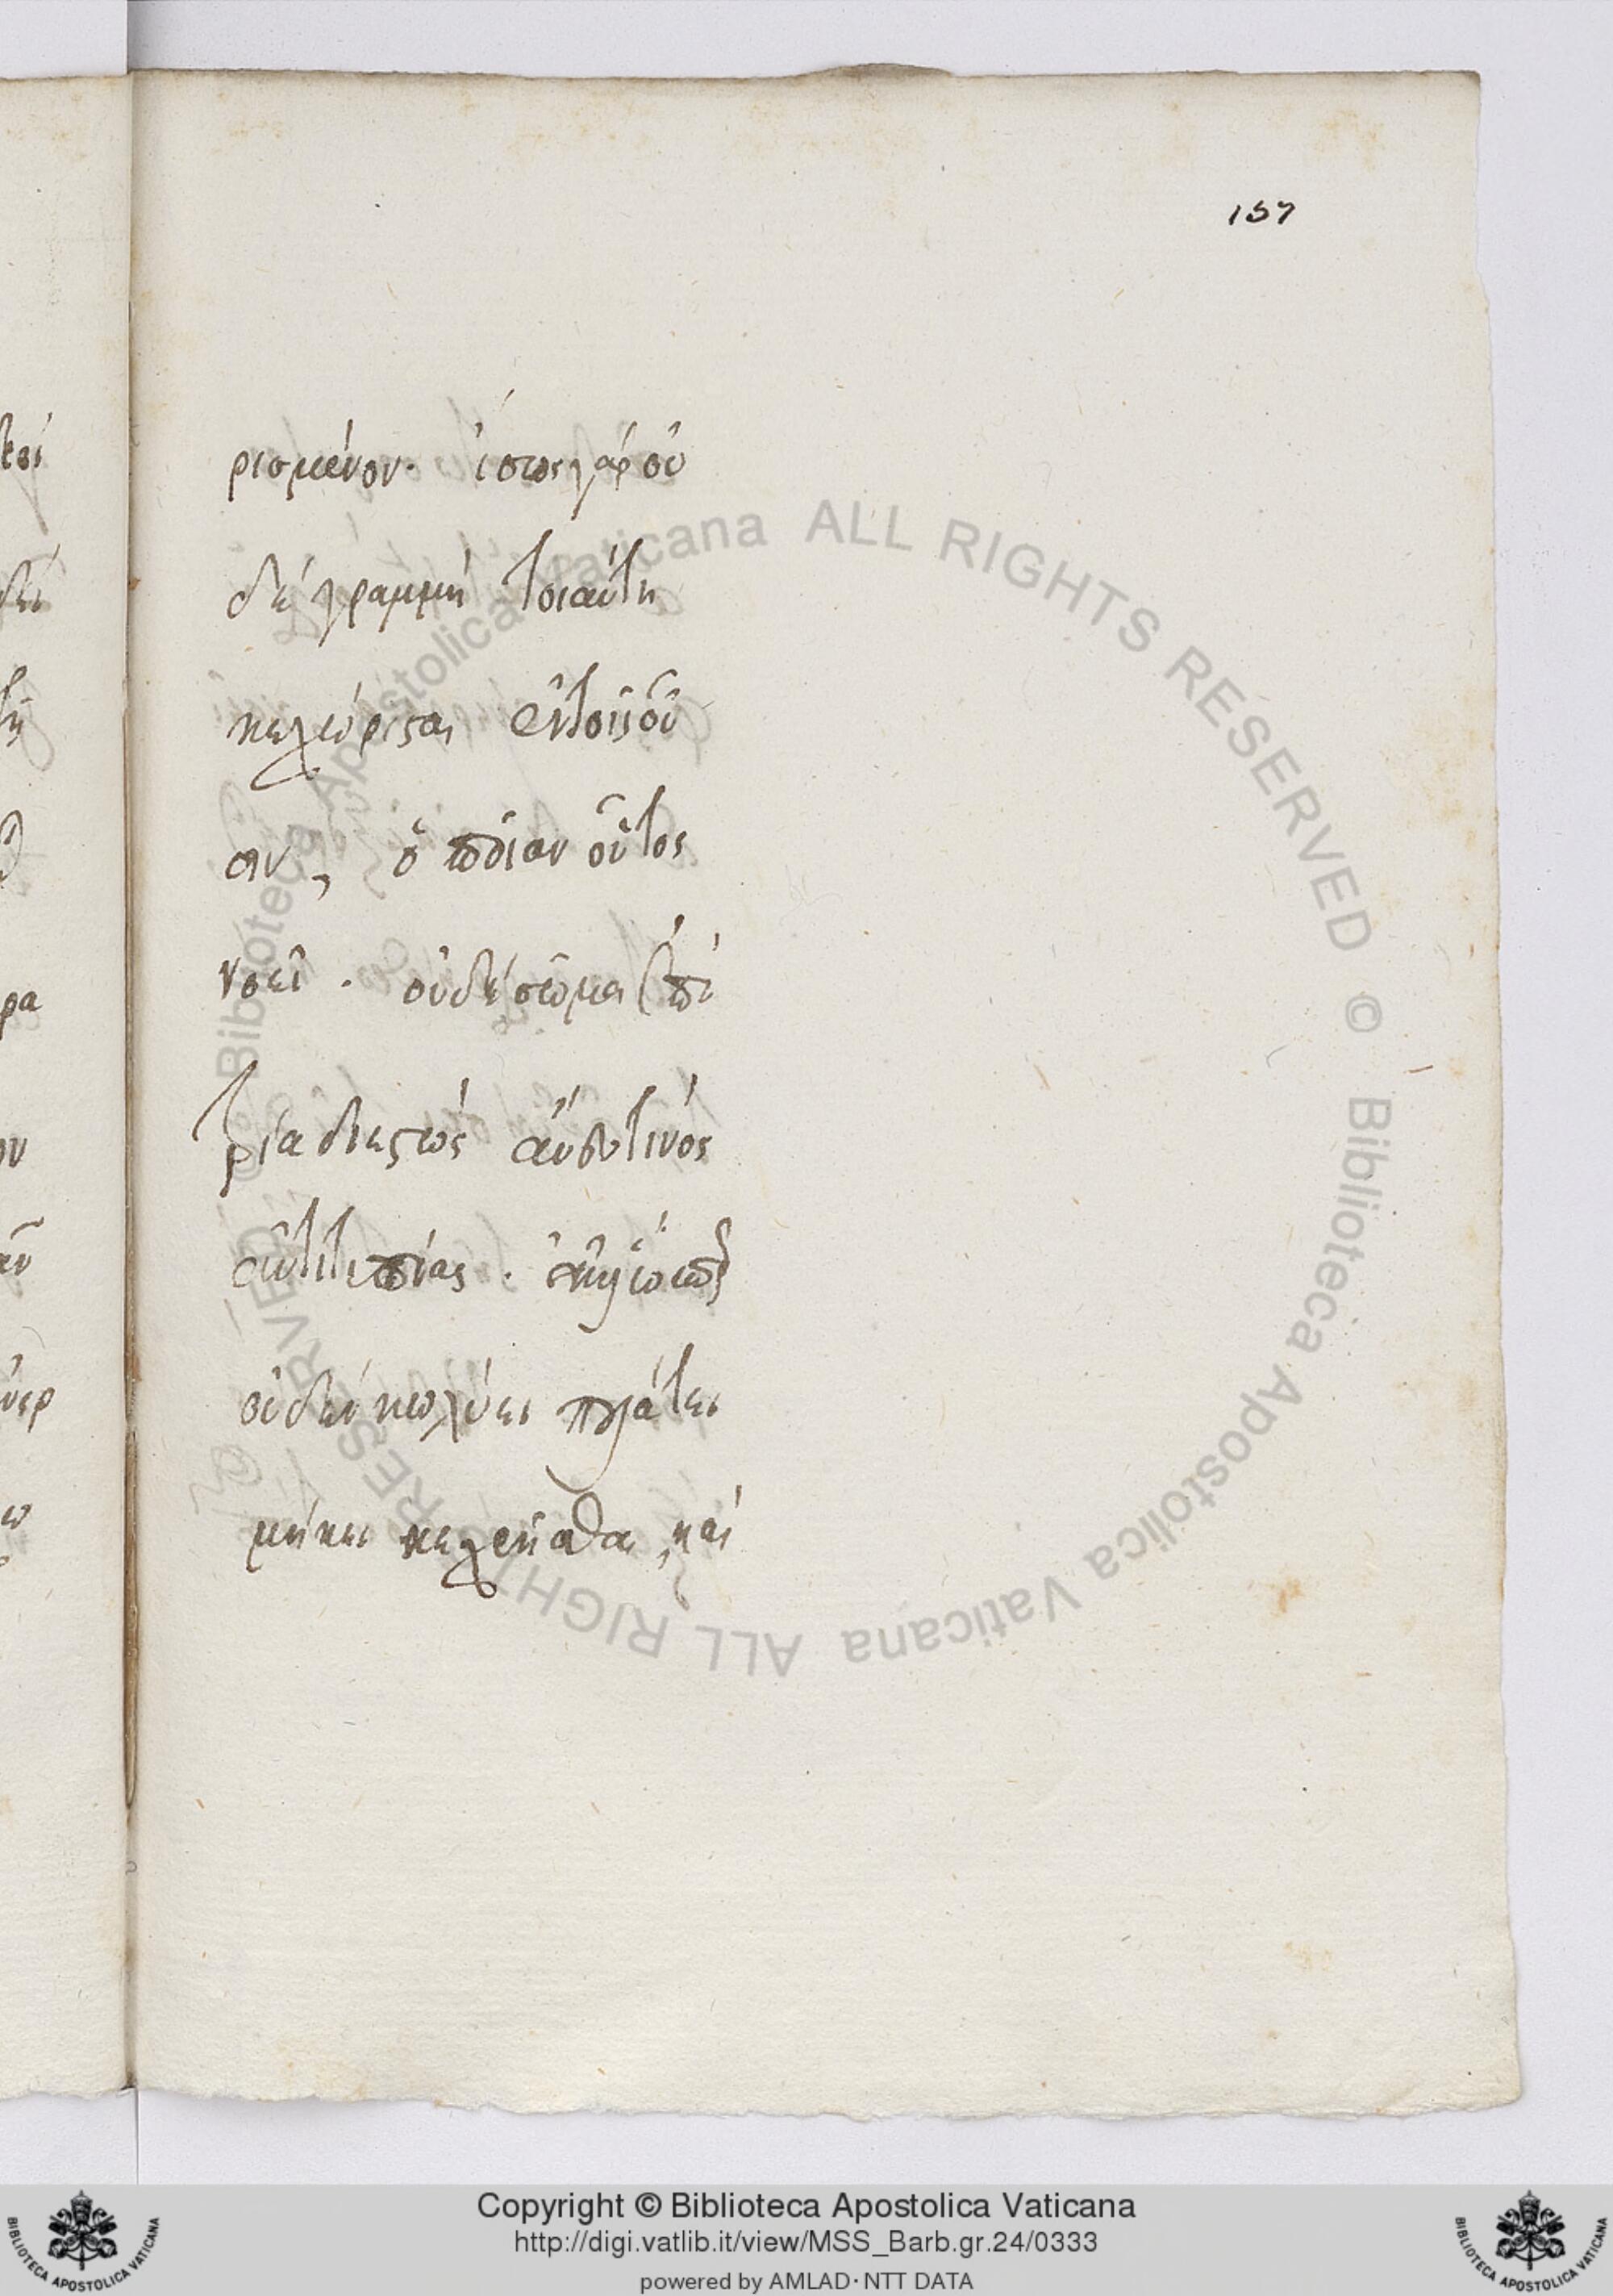 157
ρισμένον. ἴσως γὰρ οὐ
δὲ γραμμὴ τοιαύτη
κεχώρισται ἐν τοῖς οὖ
σιν, ὁποίαν οὗτος
νοεῖ. οὐδὲ σῶμα ἐπὶ
τρία διεστὼς ἄνευ τινὸς
ἀντιτυπίας.
οὐδὲν κωλύει πλάτει
μήκει κεχρῆσθαι, καὶ
ρα
Biblioteca Apostolica Vaticana ALL RIGHTS RESERVED © Biblioteca Apostolica Vaticana ALL RIGHTS RESERVED ©
Copyright © Biblioteca Apostolica Vaticana
http://digi.vatlib.it/view/MSS_Barb.gr.24/0333
powered by AMLAD · NTT DATA
BIBLIOTECA APOSTOLICA VATICANA
BIBLIOTECA APOSTOLICA VATICANA